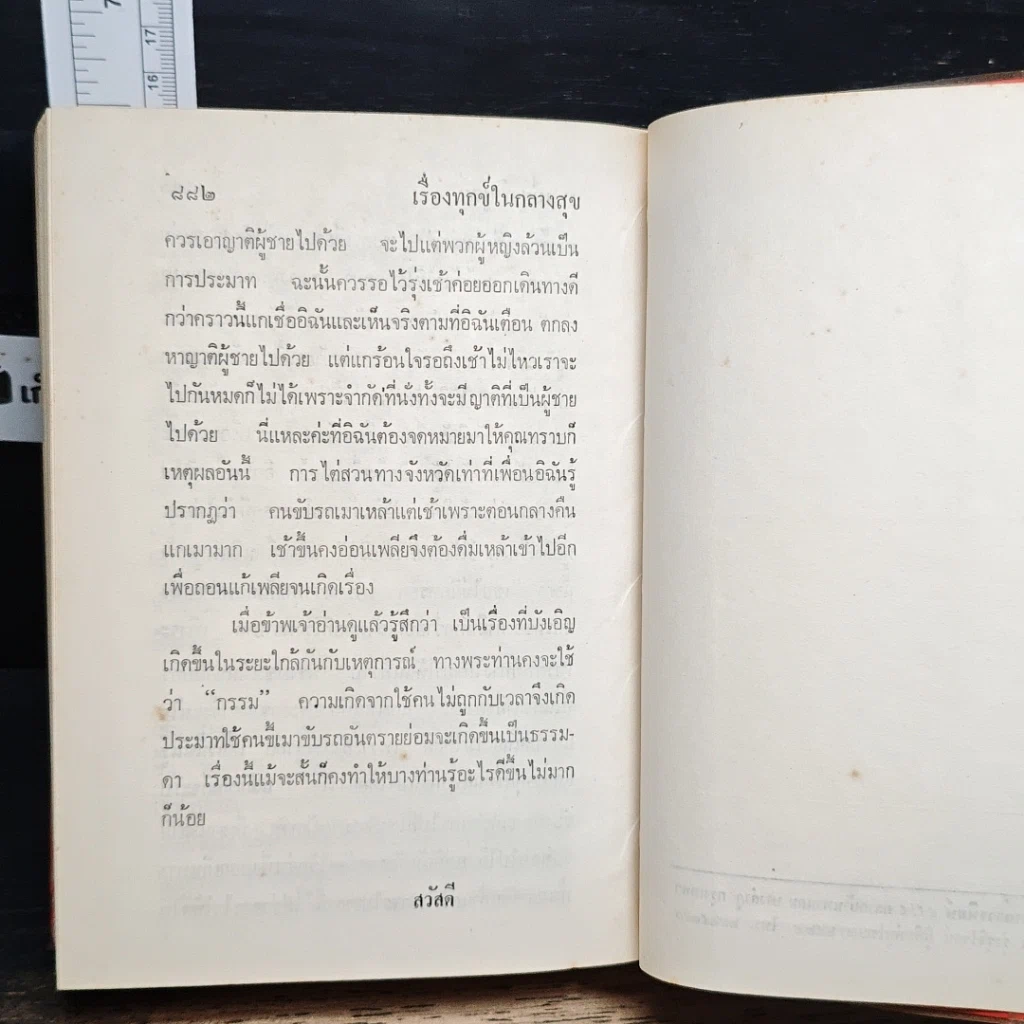 7
17
16
๘๘๒ เรื่องทุกข์ในกลางสุข
ควรเอาญาติผู้ชายไปด้วย จะไปแต่พวกผู้หญิงล้วนเป็น
การประมาท ฉะนั้นควรรอไว้รุ่งเช้าค่อยออกเดินทางดี
กว่าคราวนี้แกเชื่ออิฉันและเห็นจริงตามที่อิฉันเตือน ตกลง
หาญาติผู้ชายไปด้วย แต่แกร้อนใจรอถึงเช้าไม่ไหวเราจะ
ไปกันหมดก็ไม่ได้เพราะจำกัดที่นั่งทั้งจะมีญาติที่เป็นผู้ชาย
ไปด้วย นี่แหละค่ะที่อิฉันต้องจดหมายมาให้คุณทราบก็
เหตุผลอันนี้ การไต่สวนทางจังหวัดเท่าที่เพื่อนอิฉันรู้
ปรากฎว่า คนขับรถเมาเหล้าแต่เช้าเพราะต่อนกลางคืน
แกเมามาก เช้าขึ้นคงอ่อนเพลียจึงต้องดื่มเหล้าเข้าไปอีก
เพื่อถอนแก้เพลียจนเกิดเรื่อง
เมื่อข้าพเจ้าอ่านดูแล้วรู้สึกว่า เป็นเรื่องที่บังเอิญ
เกิดขึ้นในระยะใกล้กันกับเหตุการณ์ ทางพระท่านคงจะใช้
ว่า “กรรม” ความเกิดจากใช้คนไม่ถูกกับเวลาจึงเกิด
ประมาทใช้คนขี้เมาขับรถอันตรายย่อมจะเกิดขึ้นเป็นธรรม-
ดา เรื่องนี้แม้จะสั้นก็คงทำให้บางท่านรู้อะไรดีขึ้นไม่มาก
ก็น้อย
สวัสดี